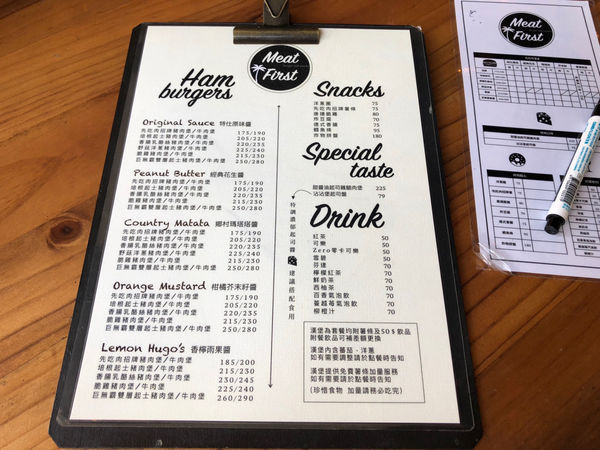 Meat
First
Ham
burgers
Original Sauce 特仕原味醬
先吃肉招牌豬肉堡/牛肉堡 175/190
培根起士豬肉堡/牛肉堡 205/220
香腸乳酪絲豬肉堡/牛肉堡 220/235
野菇洋蔥豬肉堡/牛肉堡 225/240
脆雞豬肉堡/牛肉堡 215/230
巨無霸雙層起士豬肉堡/牛肉堡 250/280
Peanut Butter 經典花生醬
先吃肉招牌豬肉堡/牛肉堡 175/190
培根起士豬肉堡/牛肉堡 205/220
香腸乳酪絲豬肉堡/牛肉堡 220/235
脆雞豬肉堡/牛肉堡 215/230
巨無霸雙層起士豬肉堡/牛肉堡 250/280
Country Matata 鄉村瑪塔塔醬
先吃肉招牌豬肉堡/牛肉堡 175/190
培根起士豬肉堡/牛肉堡 205/220
香腸乳酪絲豬肉堡/牛肉堡 220/235
野菇洋蔥豬肉堡/牛肉堡 225/240
脆雞豬肉堡/牛肉堡 215/230
巨無霸雙層起士豬肉堡/牛肉堡 250/280
Orange Mustard 柑橘芥末籽醬
先吃肉招牌豬肉堡/牛肉堡 175/190
培根起士豬肉堡/牛肉堡 205/220
香腸乳酪絲豬肉堡/牛肉堡 220/235
脆雞豬肉堡/牛肉堡 215/230
巨無霸雙層起士豬肉堡/牛肉堡 250/280
Lemon Hugo's 香檸雨果醬
先吃肉招牌豬肉堡/牛肉堡 185/200
培根起士豬肉堡/牛肉堡 215/230
香腸乳酪絲豬肉堡/牛肉堡 230/245
脆雞豬肉堡/牛肉堡 225/240
巨無霸雙層起士豬肉堡/牛肉堡 260/290
特調濃郁起司醬
建議搭配食用
Snacks
洋蔥圈 75
先吃肉招牌薯條 75
唐揚脆雞 80
炸豆腐 70
德式香腸 75
鱈魚條 95
炸物拼盤 180
Special
taste
甜醬油起司雞腿肉堡 225
沾沾堡起司盤 79
Drink
紅茶 50
可樂 50
Zero零卡可樂 50
雪碧 50
芬達 50
檸檬紅茶 70
鮮奶茶 70
西柚茶 70
百香氣泡飲 70
蔓越莓氣泡飲 70
柳橙汁 70
漢堡為套餐均附薯條及50$飲品
附餐飲品可補差額更換
漢堡內含番茄、洋蔥
如有需要調整請於點餐時告知
漢堡提供免費薯條加量服務
如有需要請於點餐時告知
(珍惜食物 加量請務必吃完)
Meat
First